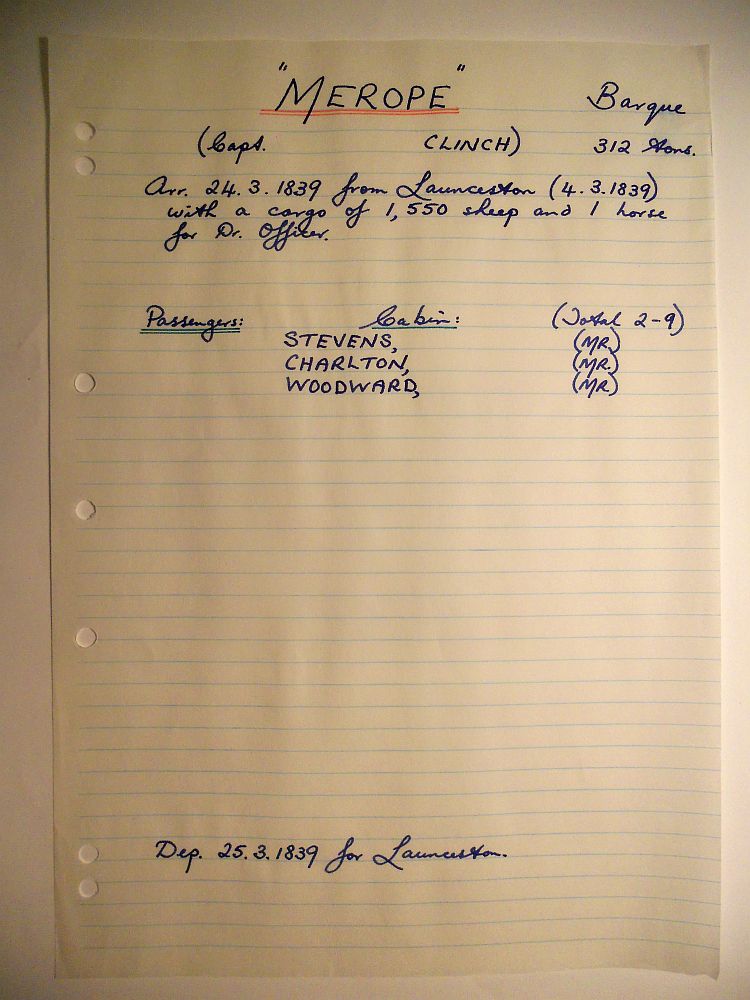 "MEROPE" Barque
(Capt. CLINCH) 312 Tons.
Arr. 24.3.1839 from Launceston (4.3.1839)
with a cargo of 1,550 sheep and 1 horse
for Dr. Officer.
Passengers: Cabin: (Total 2-9)
STEVENS, (MR.)
CHARLTON, (MR.)
WOODWARD, (MR)
Dep. 25.3.1839 for Launceston.